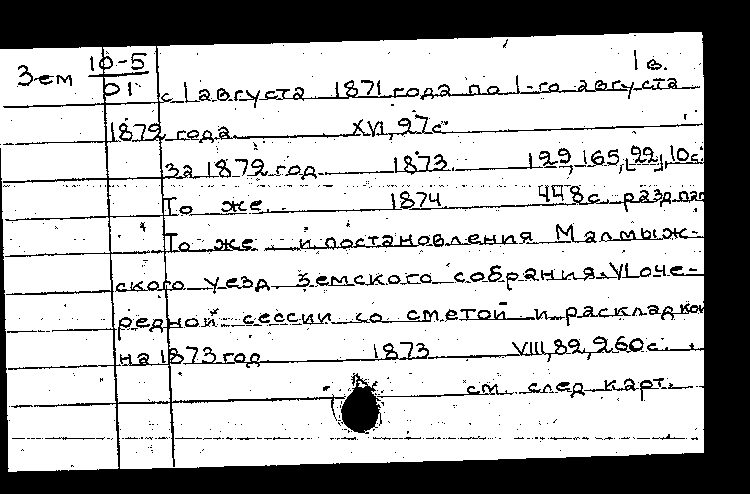 1 в.
Зем 10-5
01 с 1 августа 1871 года по 1-го августа
1872 года XVI, 97 с
за 1872 год 1873. 129, 165, [22], 10с.
То же. 1874 448с. разд. паг
То же и постановления Малмыж-
ского уезд. земского собрания VI оче-
редной сессии со сметой и раскладкой
на 1873 год 1873 VIII, 82, 260с.
см. след карт.